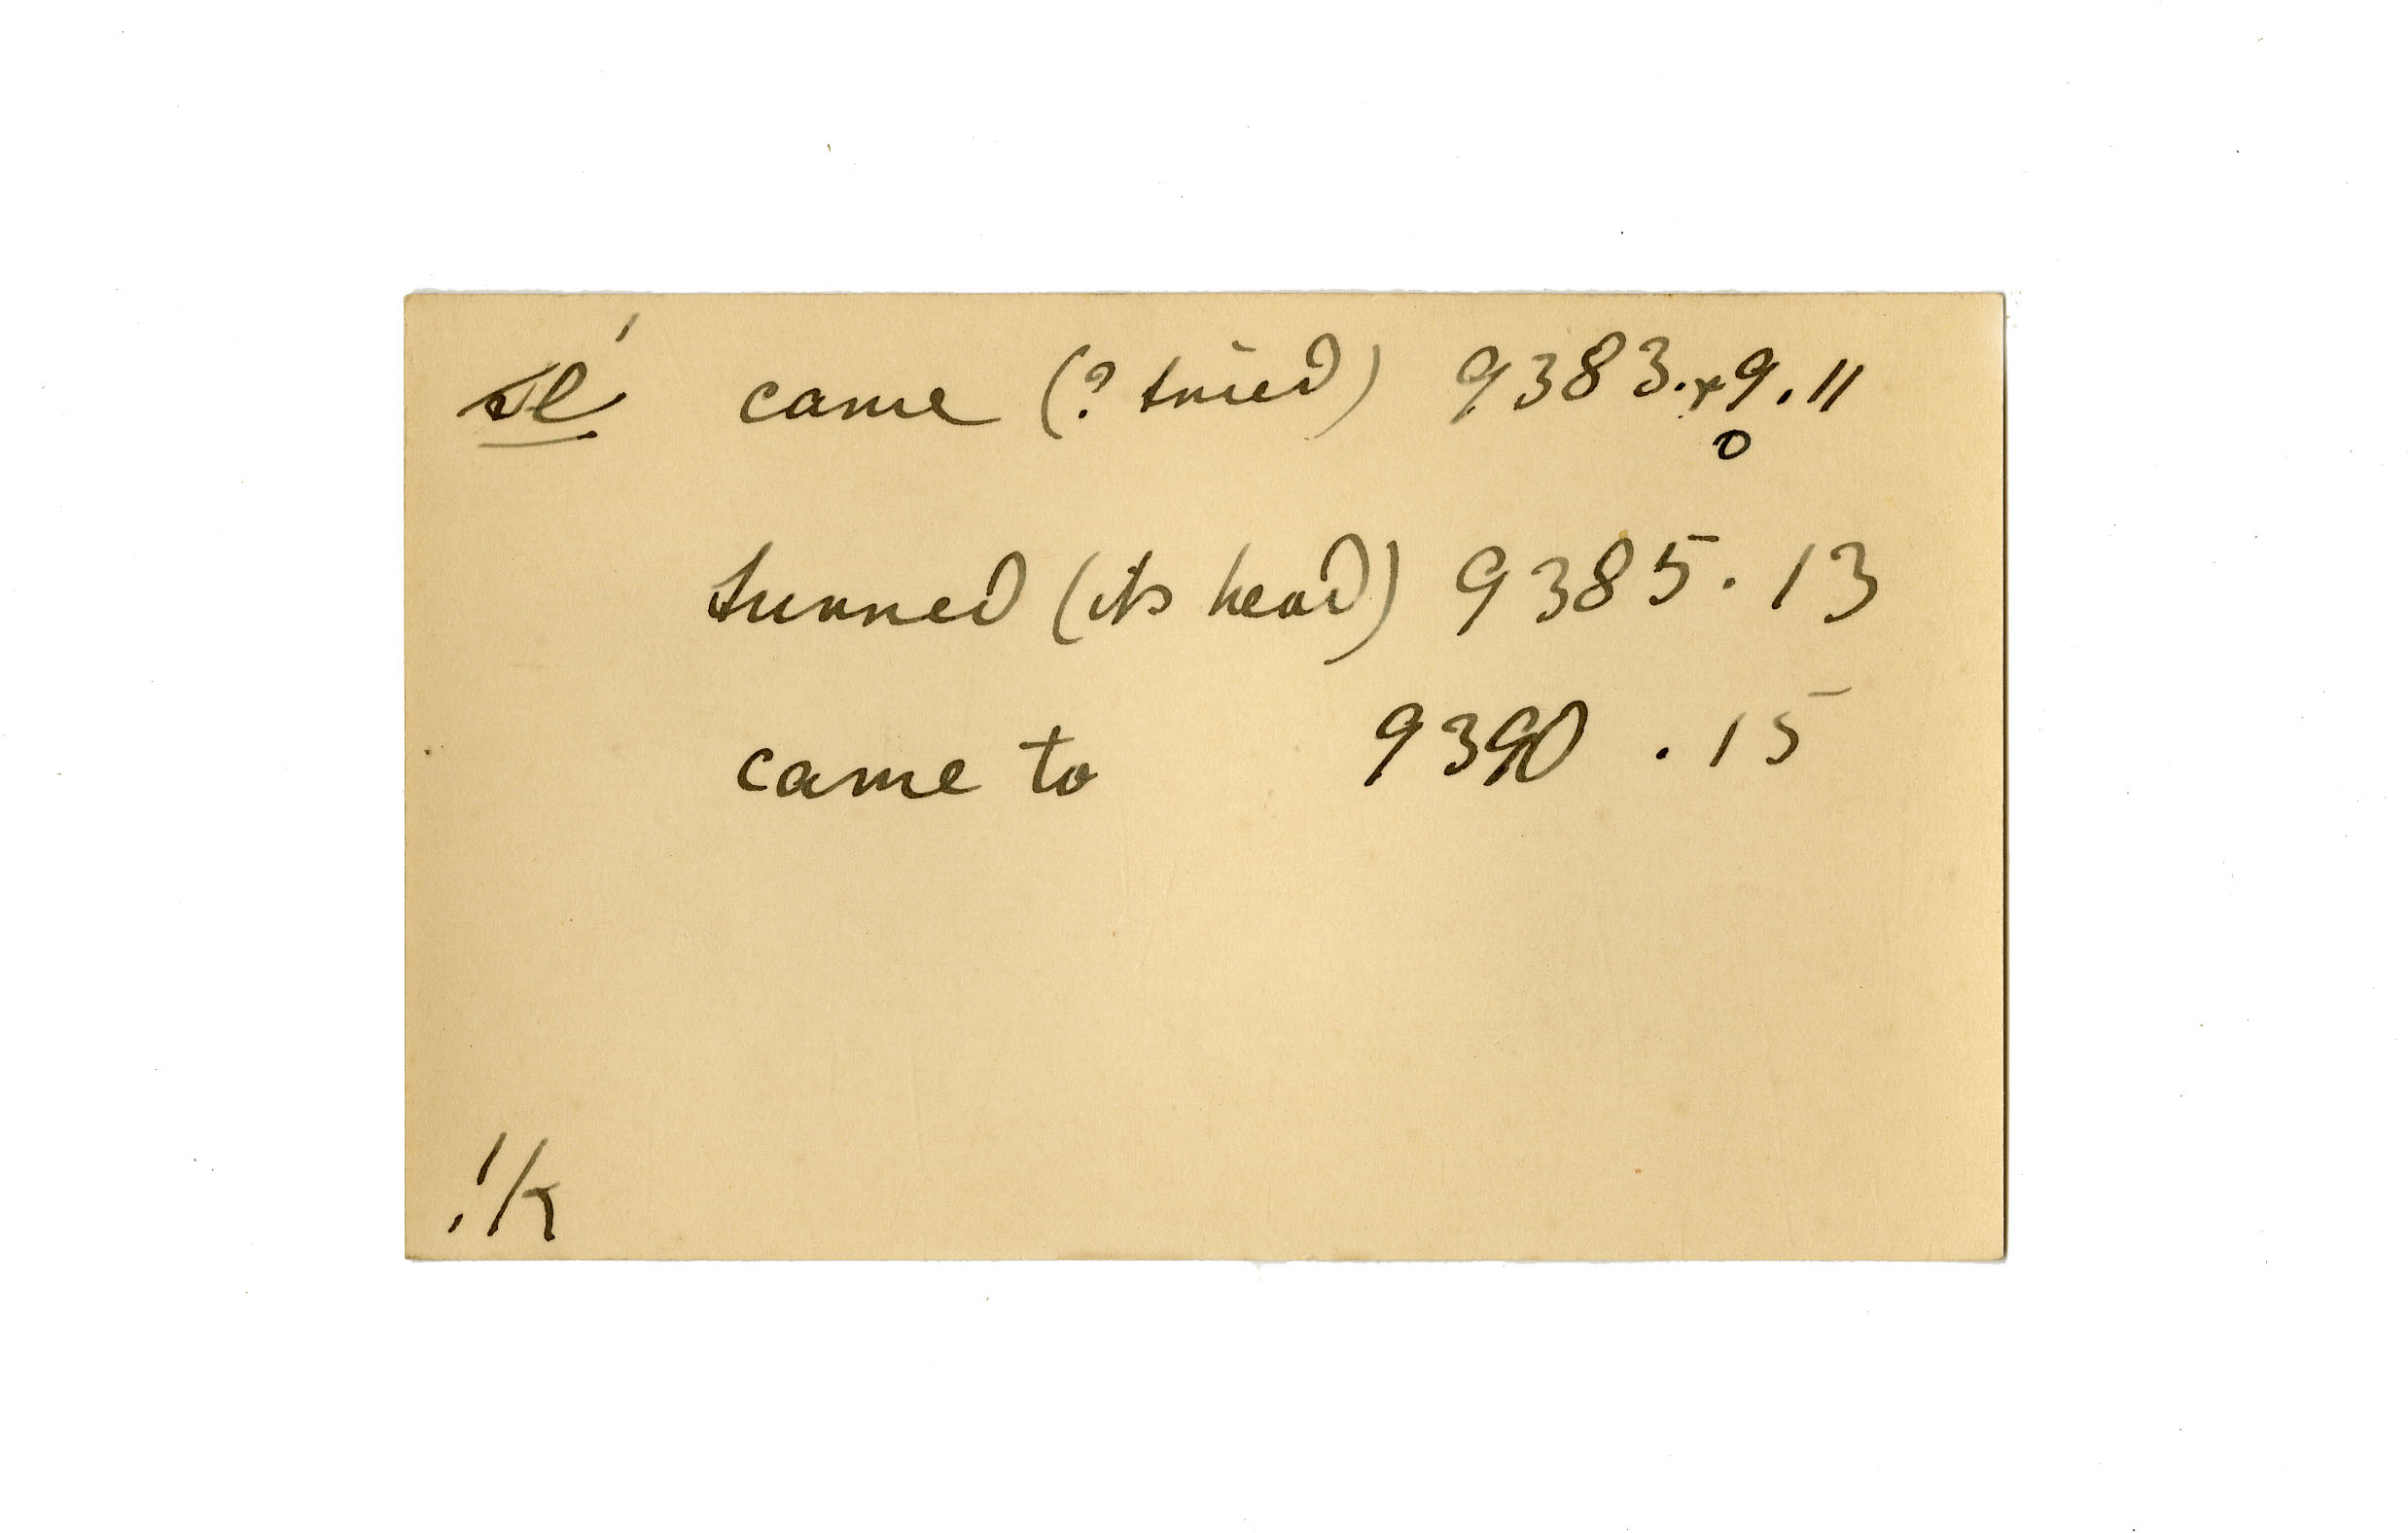 sé came (? tried) 9383.x9.11
o
turned (its head) 9385.13
came to 9390.15
!k